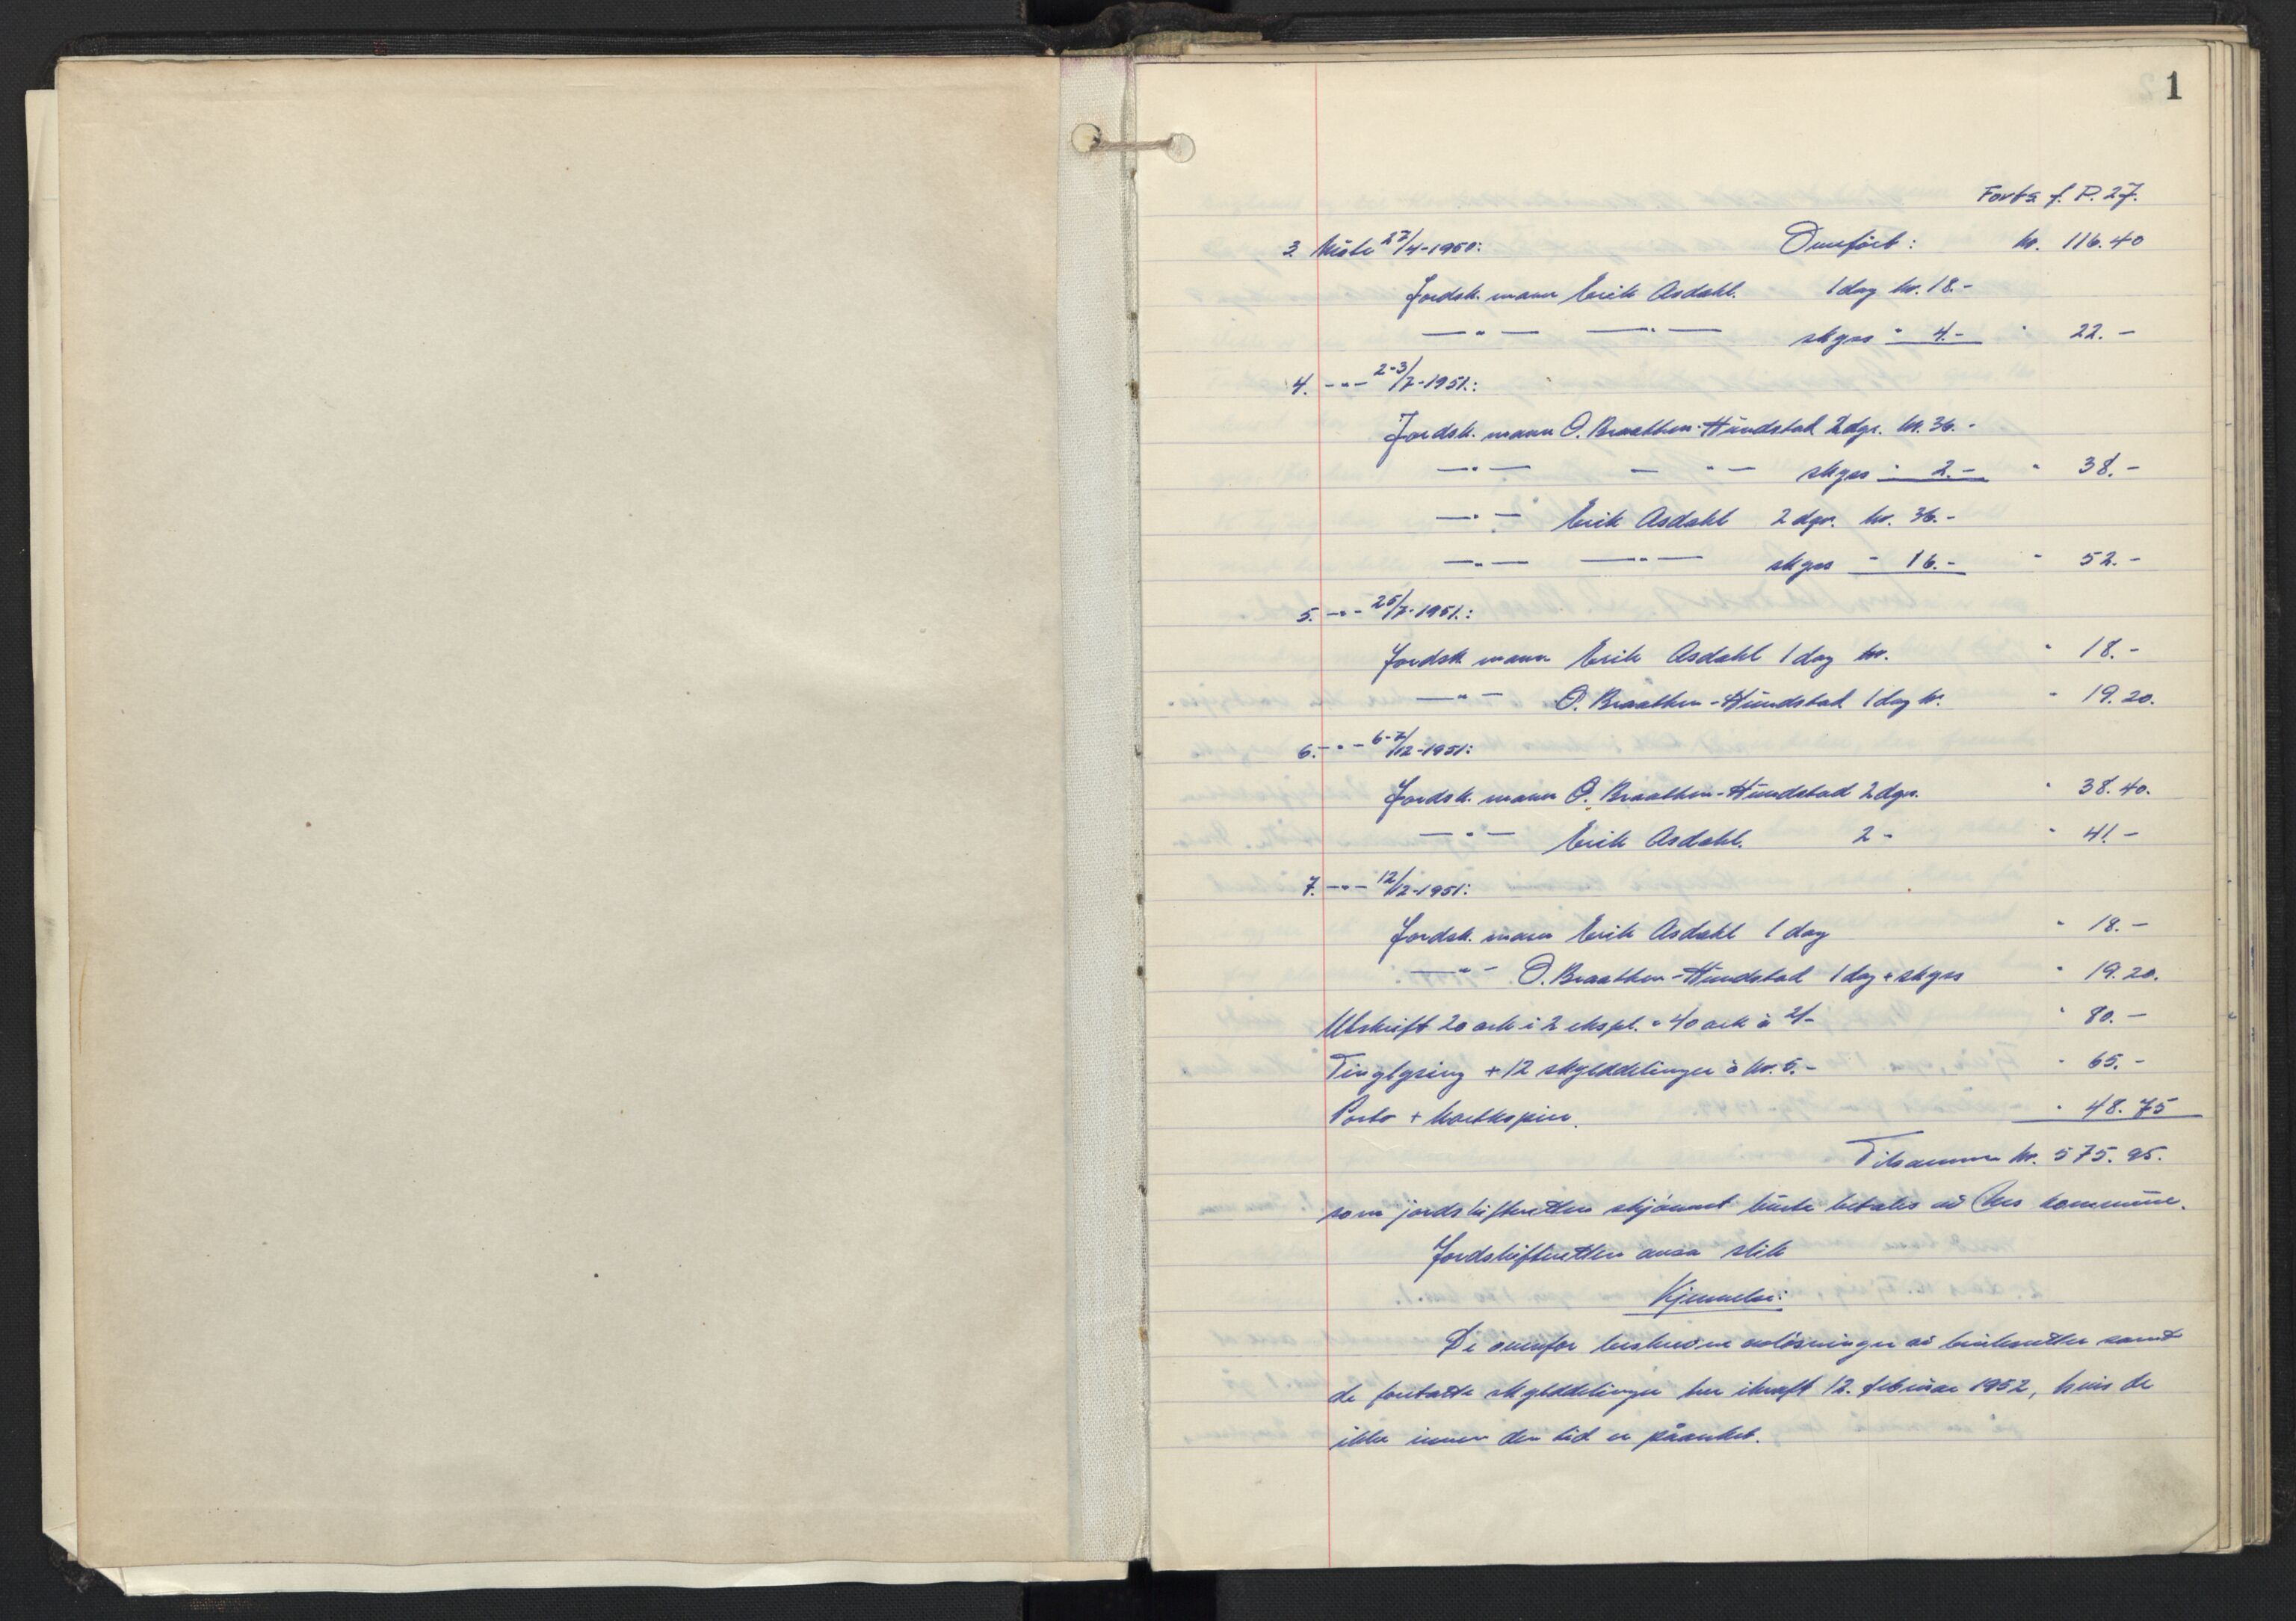 1
Forts. f. P. 27.
3. Møte 27/4-1950: Overført: kr. 116.40
Jordsk. mann Erik Asdahl. 1 dag kr. 18.-
—"— —"— skyss " 4.- " 22.-
4. -"- 2-3/7-1951.:
Jordsk. mann O. Braathen-Hundstad 2 dgr. kr. 36.-
—"— — "— skyss " 2.- " 38.-
—"— Erik Asdahl 2 dgr. kr. 36.-
—"— —"— skyss " 16.- " 52.-
5. -"- 25/7-1951.:
Jordsk. mann Erik Asdahl 1 dag kr. " 18.-
—"— O. Braathen-Hundstad 1 dag kr. " 19.20.
6. -"- 6-7/12-1951:
Jordsk. mann O. Braathen-Hundstad 2 dgr. " 38.40.
—"— Erik Asdahl. 2 - " 41.-
7. -"- 12/12-1951:
Jordsk. mann Erik Asdahl 1 dag " 18.-
—"— O. Braathen-Hundstad 1 dag + skyss " 19.20.
Utskrift 20 ark i 2 ekspl. = 40 ark à 2/- " 80.-
Tinglysing + 12 skylddelinger à kr. 5.- " 65.-
Porto + kartkopier. " 48.75
Tilsammen kr. 575.95.
som jordskifteretten skjønnet burte betales av Ås kommune.
Jordskifteretten avsa slik
Kjennelse:
De ovenfor beskrevne avløsninger av bruksretter samt
de foretatte skylddelinger trer ikraft 12. februar 1952, hvis de
ikke innen den tid er påanket.